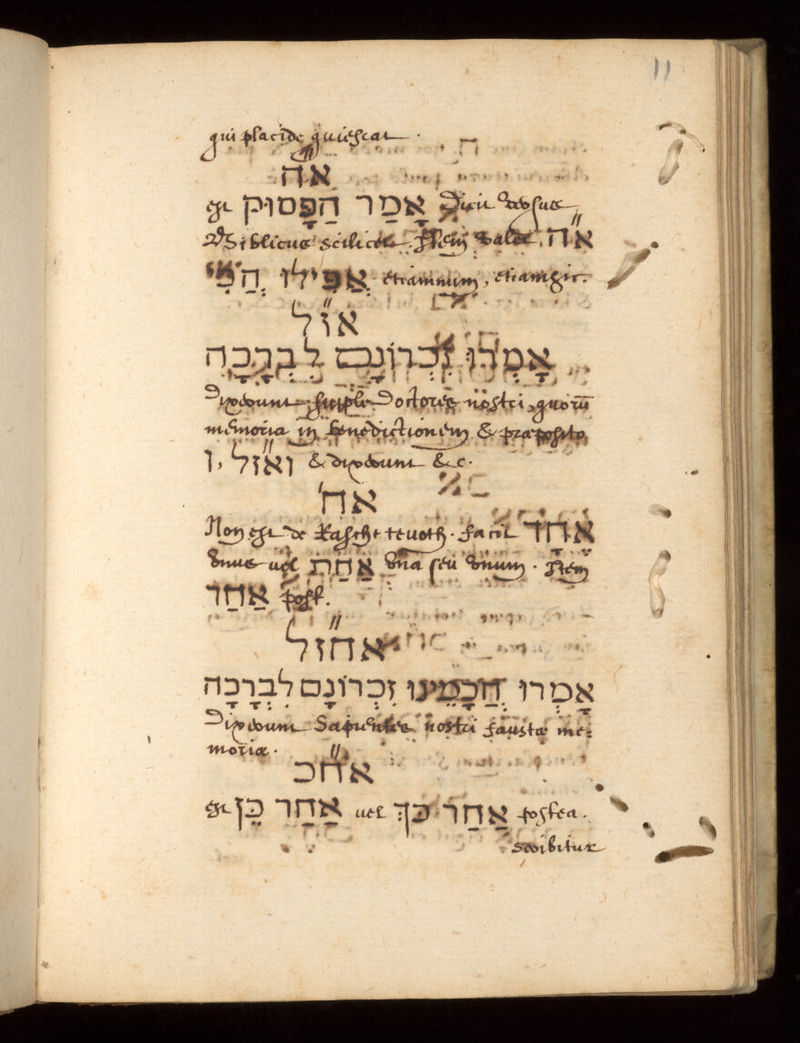 11
qui placide quiescat.
א״ה
est אָמַר הַפָּסוּק Dicit versus
Biblicus scilicet. Item valet א״ה
אֲפִילוּ הֲכִי etiamnum, etiamsic.
אז״ל
אָמְרוּ זִכְרוֹנָם לִבְרָכָה
Dixerunt supple Doctores nostri, quorū
memoria in benedictionem & præposito
ו, ואז״ל & dixerunt &c.
אח׳
Non est de Rasche tevoth. facit אֶחָד
vnus vel אַחַת vna seu vnum. Item
אַחַר post.
אחז״ל
אָמְרוּ חֲכָמֵינוּ זִכְרוֹנָם לִבְרָכָה
Dixerunt Sapientes nostri faustæ me-
moriæ.
אח״כ
est אַחַר כֵּן vel אַחַר כָּךְ postea.
scribitur